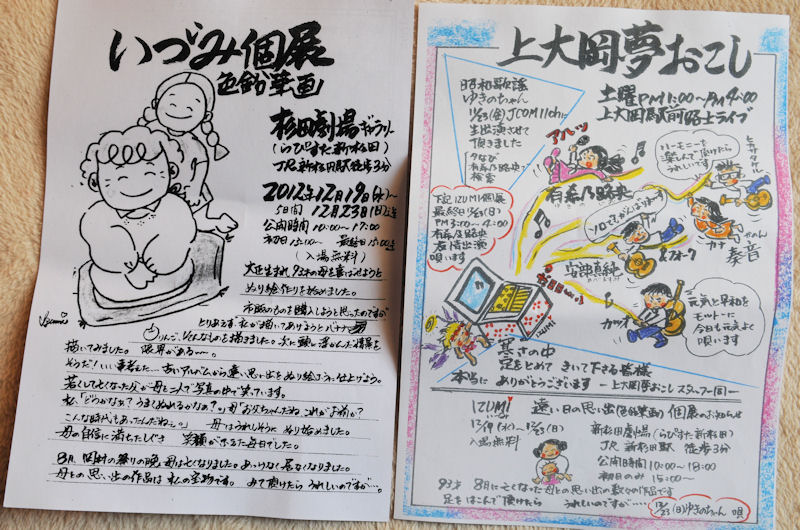 いづみ個展
色鉛筆画
杉田劇場ギャラリー
(らびすた新杉田)
JR新杉田駅徒歩3分
2012年12月19日(水)〜
5日間 12月23日(日)迄
公開時間 10:00〜17:00
初日 15:00〜 最終日15:00迄
(入場無料)
大正生まれ 93才の母を喜ばせようと
ぬり絵作りを始めました。
市販のものを購入しようと思ったのですが
とりあえず、私が描いてあげようとバナナ
りんご、いろんなものを描きました。次に頭に浮かんだ情景を
描いてみました。限界がある〜。
そうだ!! 古いアルバムから遠い思い出をぬり絵ように仕上げよう。
若くして亡くなった父が母と二人で写真の中で笑っています。
私「どうかなぁ?うまくぬれるかなの?」母「お父ちゃんだね これが お前か?
こんな時代もあったんだねぇ〜。」 母はうれしそうに ぬり始めました。
母の自信に満ちたしぐさ 笑顔が出るた毎日でした。
8月 母は亡くなりました。あっけなく 居なくなりました。
母との思い出の作品は 私の宝物です。 みて頂けたら うれしいのですが…。
Izumi
上大岡夢おこし
昭和歌謡
ゆきのちゃん
11/23(金)JCOM11chに
生出演させて
頂きました
有森乃路央で
検索
土曜PM1:00〜PM4:00
上大岡駅前路上ライブ
アルツ
有森乃路央
ハーモニーを
楽しんで頂けたら
うれしいです
ヒガサタケル
下記IZUMI個展
最終日12/23(日)
PM3:00〜4:00
有森乃路央
友情出演
唄います
ソロでもがんばりま〜す
カナ
かのん
奏音
&フォーク
安部真純
カツオ
元気と平和を
モットーに
今日も元気よく
唄います
IZUMI
寒さの中
足をとめて きいて下さる皆様
本当に ありがとうございます ー上大岡夢おこしスタッフ一同ー
IZUMI 遠い日の思い出(色鉛筆画)個展のお知らせ
12/19(水)〜12/23(日)
入場無料
新杉田劇場(らびすた新杉田)
JR 新杉田駅 徒歩3分
公開時間10:00〜18:00
初日のみ 15:00〜
93才 8月に亡くなった母との思い出の数々の作品です
足をはこんで頂けたら うれしいのですが……
12/23(日)ゆきのちゃん 唄